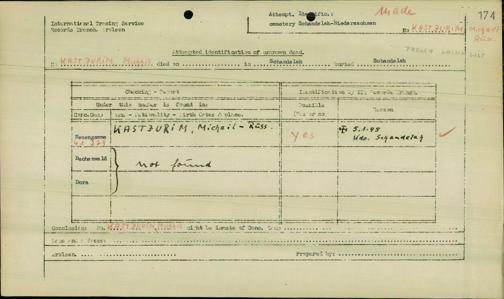 174
International Tracing Service
Records Branch, Arolsen
Attempt. Identific.: made
cemetery Schandelah-Niedersachsen
No KASTJURIM, Michail
Russ.
FRENCH LIST
Attempted identification of unknown dead.
N. KASTJURIM died on in Schandelah buried Schandelah
Checking - Report Identification by ITS Records Branch
Under this number is found in: Possible Reason
Conc.Camp Name - Nationality - Birth Date & place. Yes or no
Neuengamme KASTJURIM, Michail - Russ. yes ✠ 5.1.45
Kdo. Schandelah
Buchenwald
not found
Dora
Conclusion: No. KASTJURIM might be inmate of Conc. Camp
Arolsen, Prepared by: